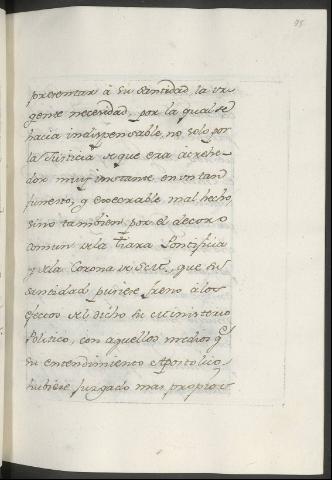 95.
presentar à su Santidad, la ur-
gente necesidad, por la qual se
hacia indispensable, no solo por
la Justicia de que era acrehe-
dor muy instante en un tan
funesto, y execrable mal hecho,
sino tambien por el decoro
comun de la Tiara Pontificia
y de la Corona de que su
santidad pusiere freno à los
del dicho su Ministerio
Politico, con aquellos medios qe
su entendimiento Apostolico
hubiere juzgado mas propios